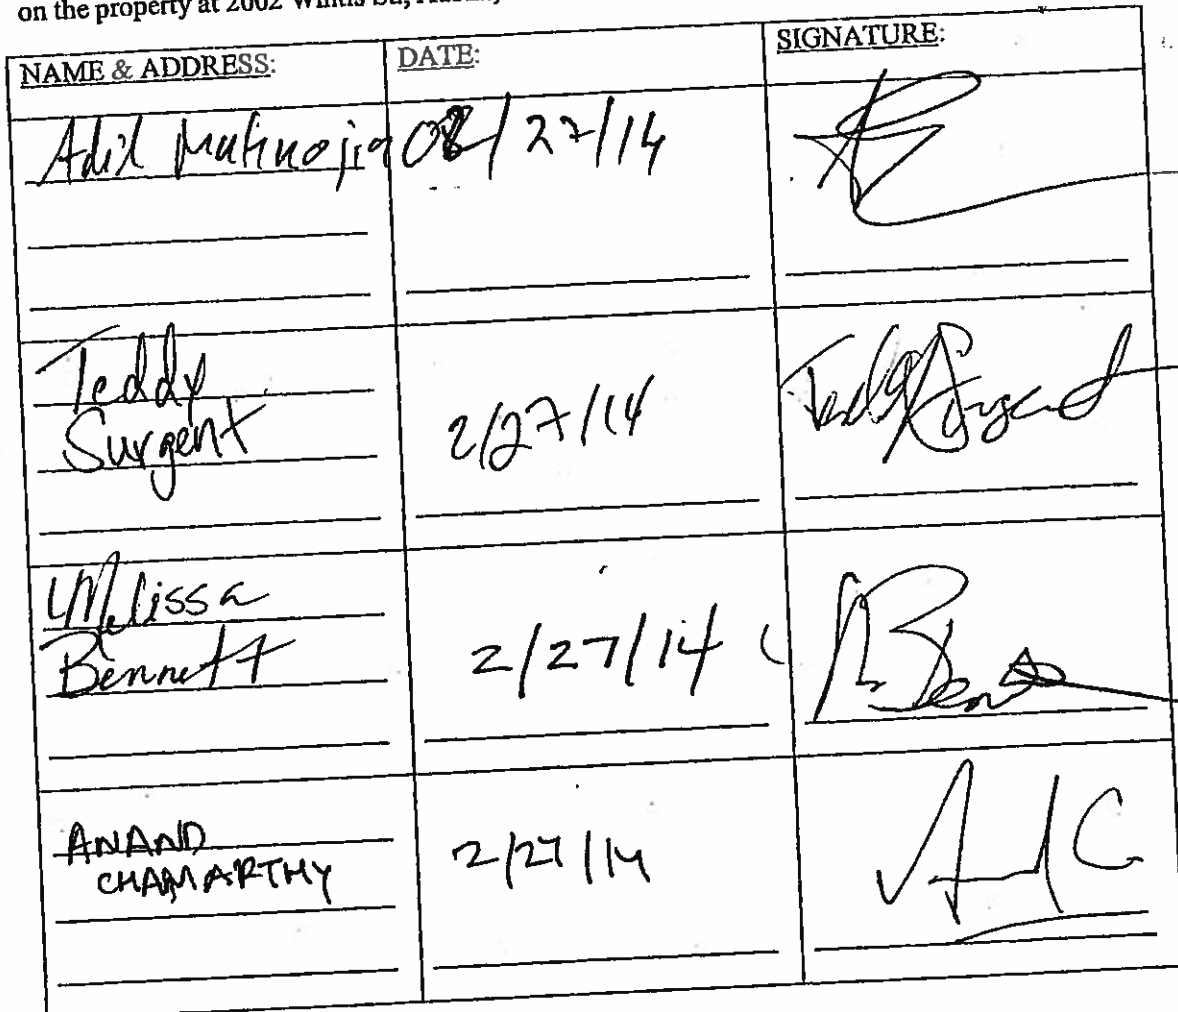 on the property at 2002 Wintis
NAME & ADDRESS: DATE: SIGNATURE:
Adil 02/27/14
Teddy
Surgent 2/27/14 Teddy Surgent
Melissa
Bennett 2/27/14
ANAND
CHAMARTHY 2/27/14